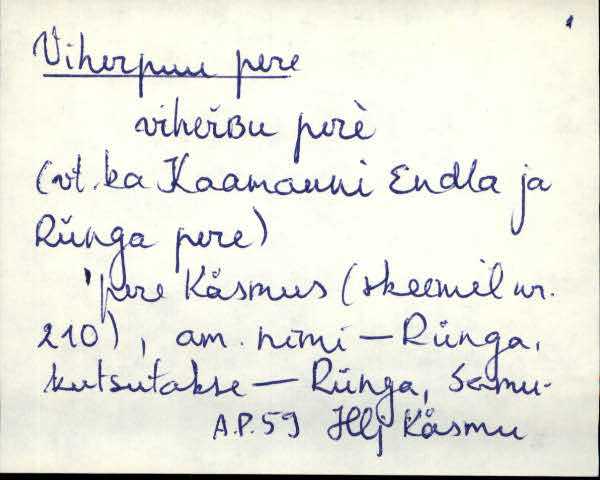 Viherpuu pere
viheřʙu perè
(vt. ka Kaarnauni Endla ja
Rünga pere)
'pere Käsmus (skeemil nr.
210), am. nimi — Rünga,
kutsutakse — Rünga, Samu-
A.P. 59 Hlj Käsmu